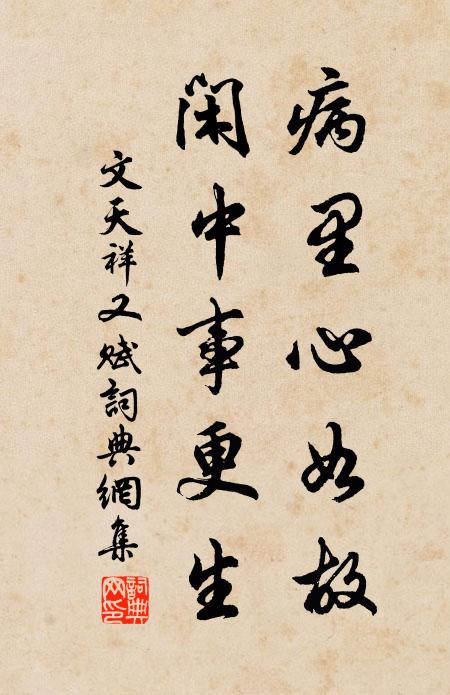 病里心如故
闲中事更生
文天祥又赋詞典網集
詞典網印